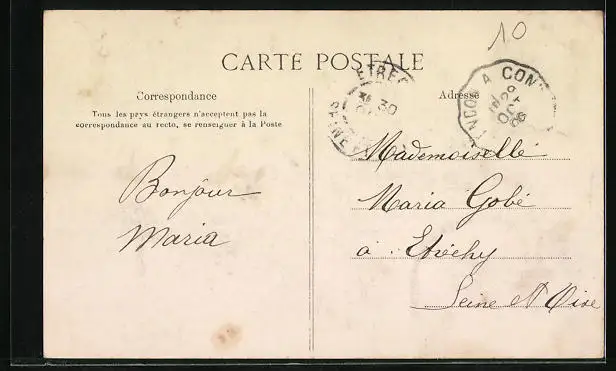 10
CARTE POSTALE
Correspondance
Tous les pays étrangers n'acceptent pas la
correspondance au recto, se renseigner à la Poste
Bonjour
Maria
Adresse
Mademoiselle
Maria Gobé
à Etréchy
Seine et Oise
ETREC
30
A CON
29